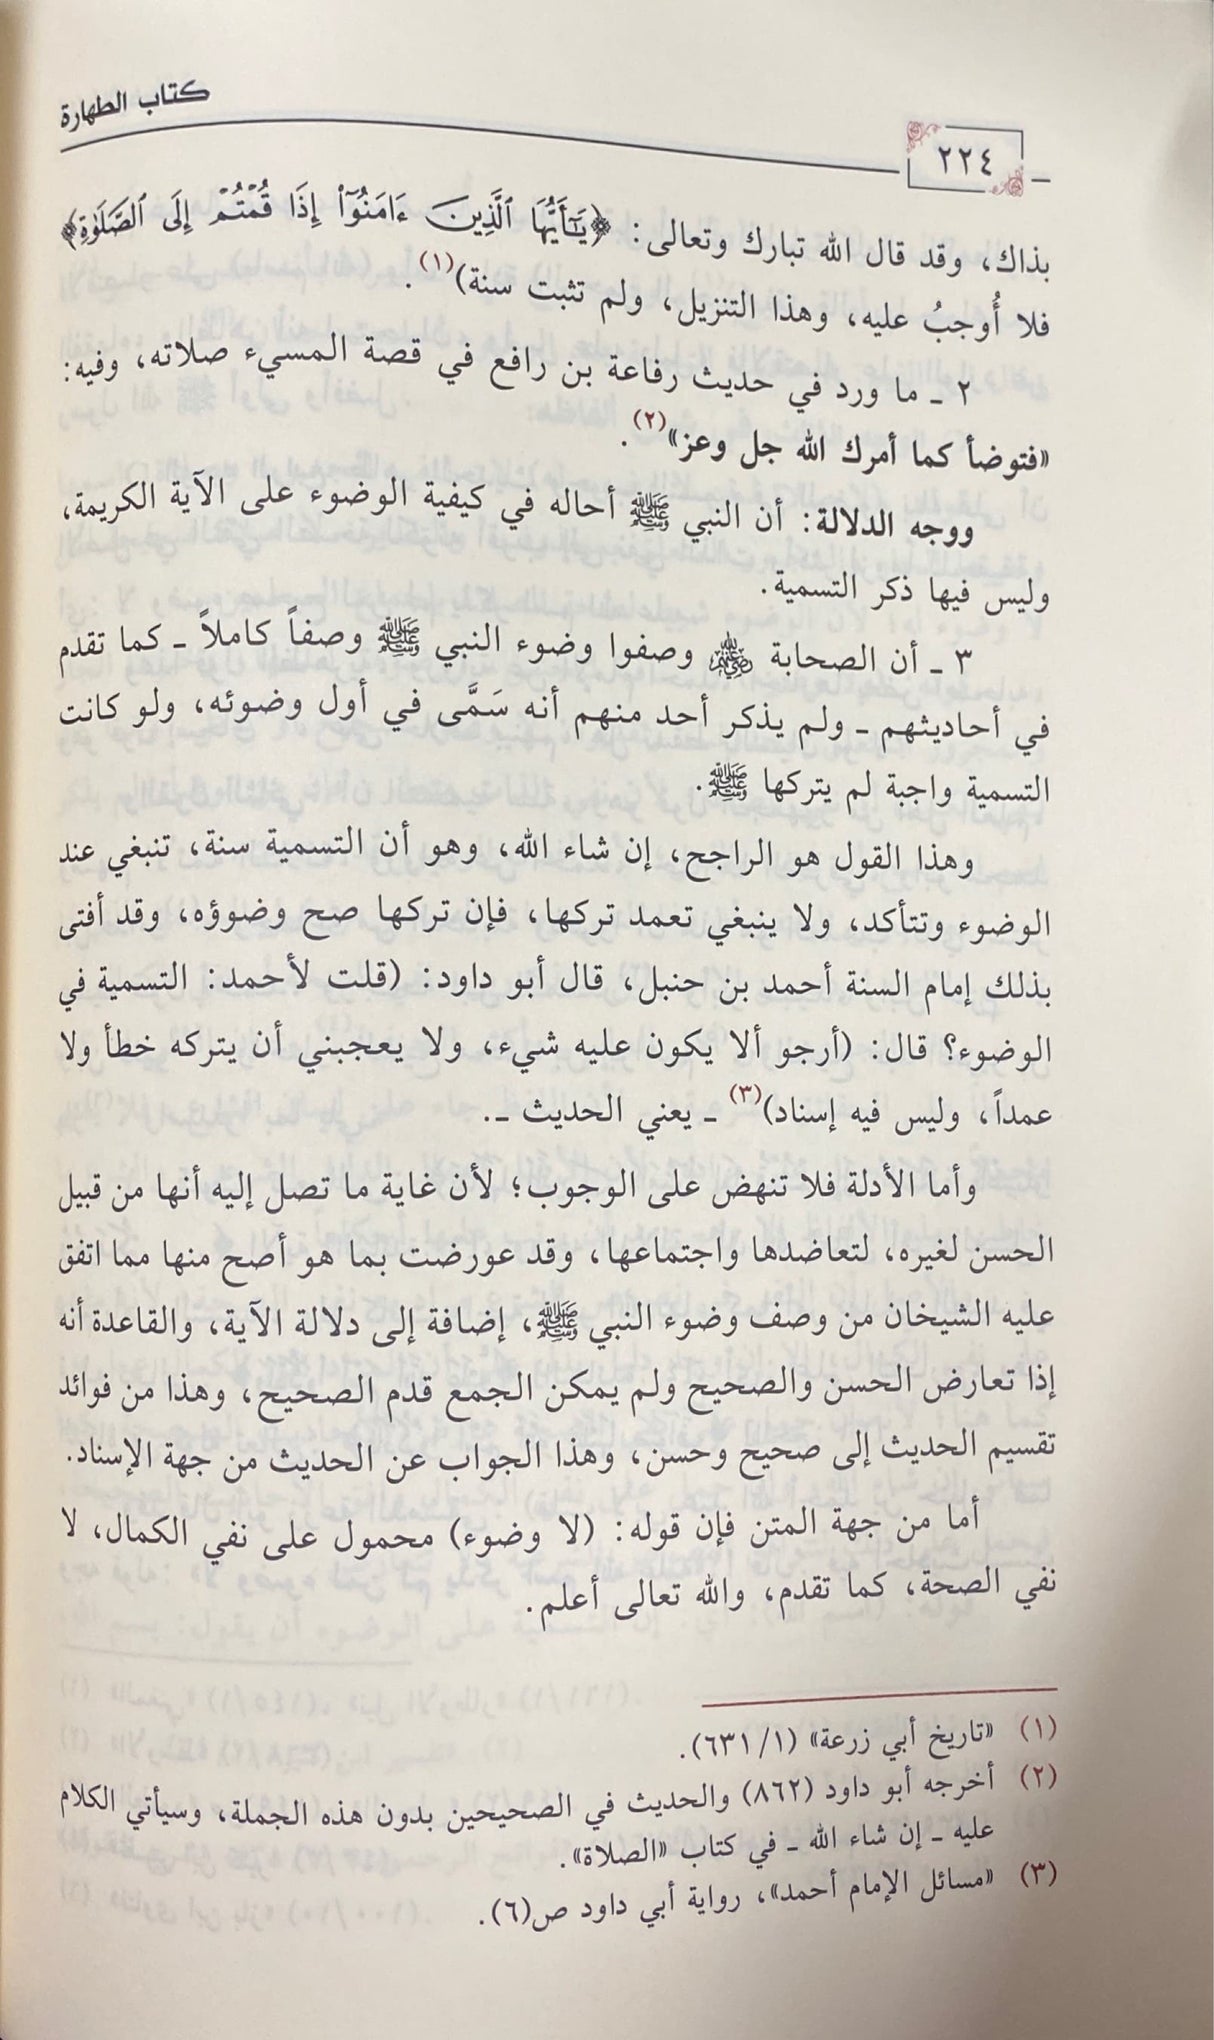 كتاب الطهارة
٢٢٤
بذاك، وقد قال الله تبارك وتعالى: ﴿يَٰٓأَيُّهَا ٱلَّذِينَ ءَامَنُوٓا۟ إِذَا قُمْتُمْ إِلَى ٱلصَّلَوٰةِ﴾
فلا أُوجبُ عليه، وهذا التنزيل، ولم تثبت سنة)(١).
٢ ـ ما ورد في حديث رفاعة بن رافع في قصة المسيء صلاته، وفيه:
«فتوضأ كما أمرك الله جل وعز»(٢).
ووجه الدلالة: أن النبي ﷺ أحاله في كيفية الوضوء على الآية الكريمة،
وليس فيها ذكر التسمية.
٣ ـ أن الصحابة ﵃ وصفوا وضوء النبي ﷺ وصفاً كاملاً ـ كما تقدم
في أحاديثهم ـ ولم يذكر أحد منهم أنه سَمَّى في أول وضوئه، ولو كانت
التسمية واجبة لم يتركها ﷺ.
وهذا القول هو الراجح، إن شاء الله، وهو أن التسمية سنة، تنبغي عند
الوضوء وتتأكد، ولا ينبغي تعمد تركها، فإن تركها صح وضوؤه، وقد أفتى
بذلك إمام السنة أحمد بن حنبل، قال أبو داود: (قلت لأحمد: التسمية في
الوضوء؟ قال: (أرجو ألا يكون عليه شيء، ولا يعجبني أن يتركه خطأ ولا
عمداً، وليس فيه إسناد)(٣) ـ يعني الحديث ـ.
وأما الأدلة فلا تنهض على الوجوب؛ لأن غاية ما تصل إليه أنها من قبيل
الحسن لغيره، لتعاضدها واجتماعها، وقد عورضت بما هو أصح منها مما اتفق
عليه الشيخان من وصف وضوء النبي ﷺ، إضافة إلى دلالة الآية، والقاعدة أنه
إذا تعارض الحسن والصحيح ولم يمكن الجمع قدم الصحيح، وهذا من فوائد
تقسيم الحديث إلى صحيح وحسن، وهذا الجواب عن الحديث من جهة الإسناد.
أما من جهة المتن فإن قوله: (لا وضوء) محمول على نفي الكمال، لا
نفي الصحة، كما تقدم، والله تعالى أعلم.
(١) «تاريخ أبي زرعة» (١/ ٦٣١).
(٢) أخرجه أبو داود (٨٦٢) والحديث في الصحيحين بدون هذه الجملة، وسيأتي الكلام
عليه ـ إن شاء الله ـ في كتاب «الصلاة».
(٣) «مسائل الإمام أحمد»، رواية أبي داود ص(٦).